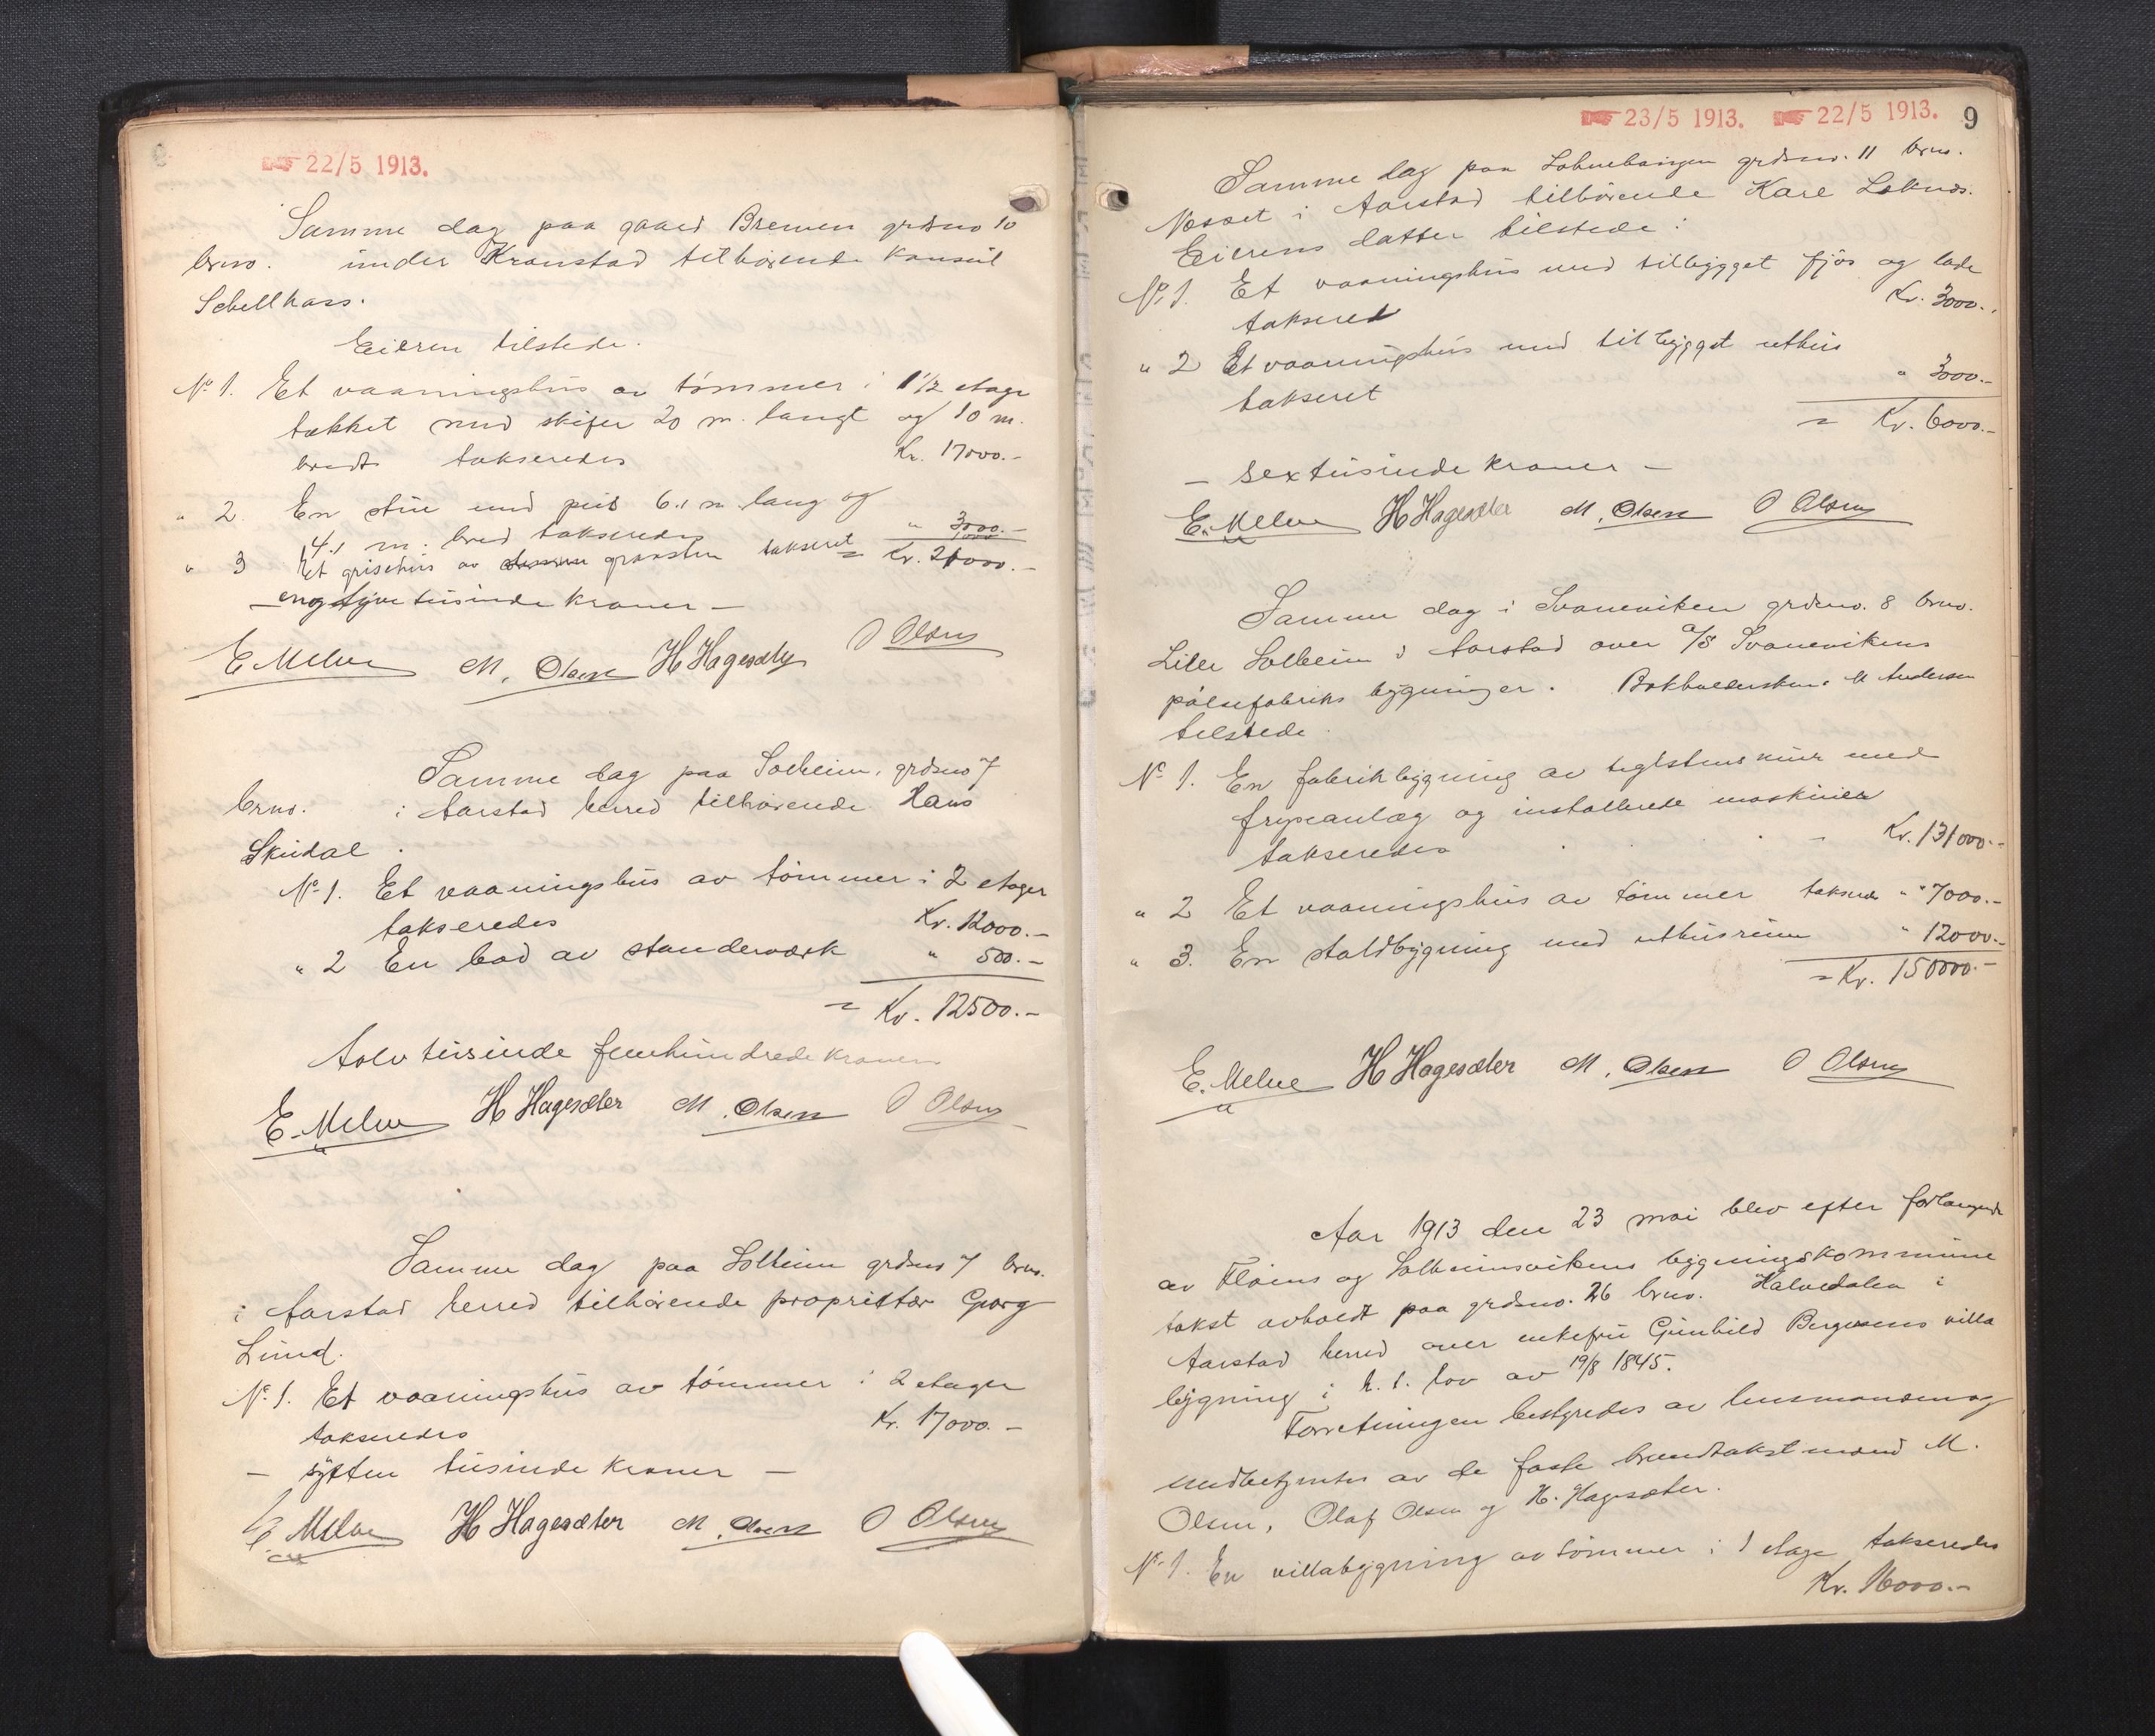 22/5 1913.
Samme dag paa gaard Bremen grdsno 10
brno. under Kronstad tilhørende konsul
Schellhass.
Eieren tilstede.
No 1. Et vaaningshus av tømmer i 1 1/2 etage
tækket med skifer 20 m. langt og 10 m.
bredt takseredes Kr. 17000.-
" 2 En stue med peis 6.1 m. lang og
4.1 m. bred takseredes " 3000.-
" 3 Et grisehus av graasten takseret 1000
= Kr. 21000.-
- enogtyve tusinde kroner -
E Melve M. Olsen H Hagesæter O Olsen
Samme dag paa Solheim, grdsno 7
brno. i Aarstad herred tilhørende Hans
Skudal.
No 1. Et vaaningshus av tømmer i 2 etager
takseredes Kr. 12000.-
" 2 En bod av standerværk " 500.-
= Kr. 12500.-
tolv tusinde femhundrede kroner
E. Melve H Hagesæter M. Olsen O Olsen
Samme dag paa Solheim grdsno 7 brno.
i Aarstad herred tilhørende proprietær Georg
Lund.
No 1. Et vaaningshus av tømmer i 2 etager
takseredes Kr. 17000.-
- sytten tusinde kroner -
E. Melve H Hagesæter M. Olsen O Olsen
23/5 1913. 22/5 1913. 9
Samme dag paa grdsno. 11 brno.
Næsset i Aarstad tilhørende Kare
Eierens datter tilstede:
No 1. Et vaaningshus med tilbygget fjøs og lade
takseret Kr. 3000.-
" 2 Et vaaningshus med tilbygget uthus
takseret " 3000.-
= Kr. 6000.-
- sex tusinde kroner -
E. Melve H Hagesæter M. Olsen O Olsen
Samme dag i Svaneviken grdsno. 8 brno.
Lille Solheim i Aarstad over A/S Svanevikens
pølsefabriks bygninger. Bokholdersken M Andersen
tilstede.
No 1. En fabrikbygning av teglstensmur med
fryseanlæg og installerede maskiner
takseredes - Kr. 131000.-
" 2 Et vaaningshus av tømmer takseredes " 7000.-
" 3. En staldbygning med uthusrum " 12000.-
= Kr. 150000.-
E. Melve H Hagesæter M. Olsen O Olsen
Aar 1913 den 23 mai blev efter forlangende
av Fløiens og Solheimsvikens bygningskommune
takst avholdt paa grdsno. 26 brno. Kalvedalen i
Aarstad herred over enkefru Gunhild Bergesens villa
bygning i h. t. lov av 19/8 1845.
Forretningen bestyredes av lensmanden og
medbetjentes av de faste brandtakstmænd M.
Olsen, Olaf Olsen og H. Hagesæter.
No 1. En villabygning av tømmer i 1 etage takseredes
Kr. 16000.-